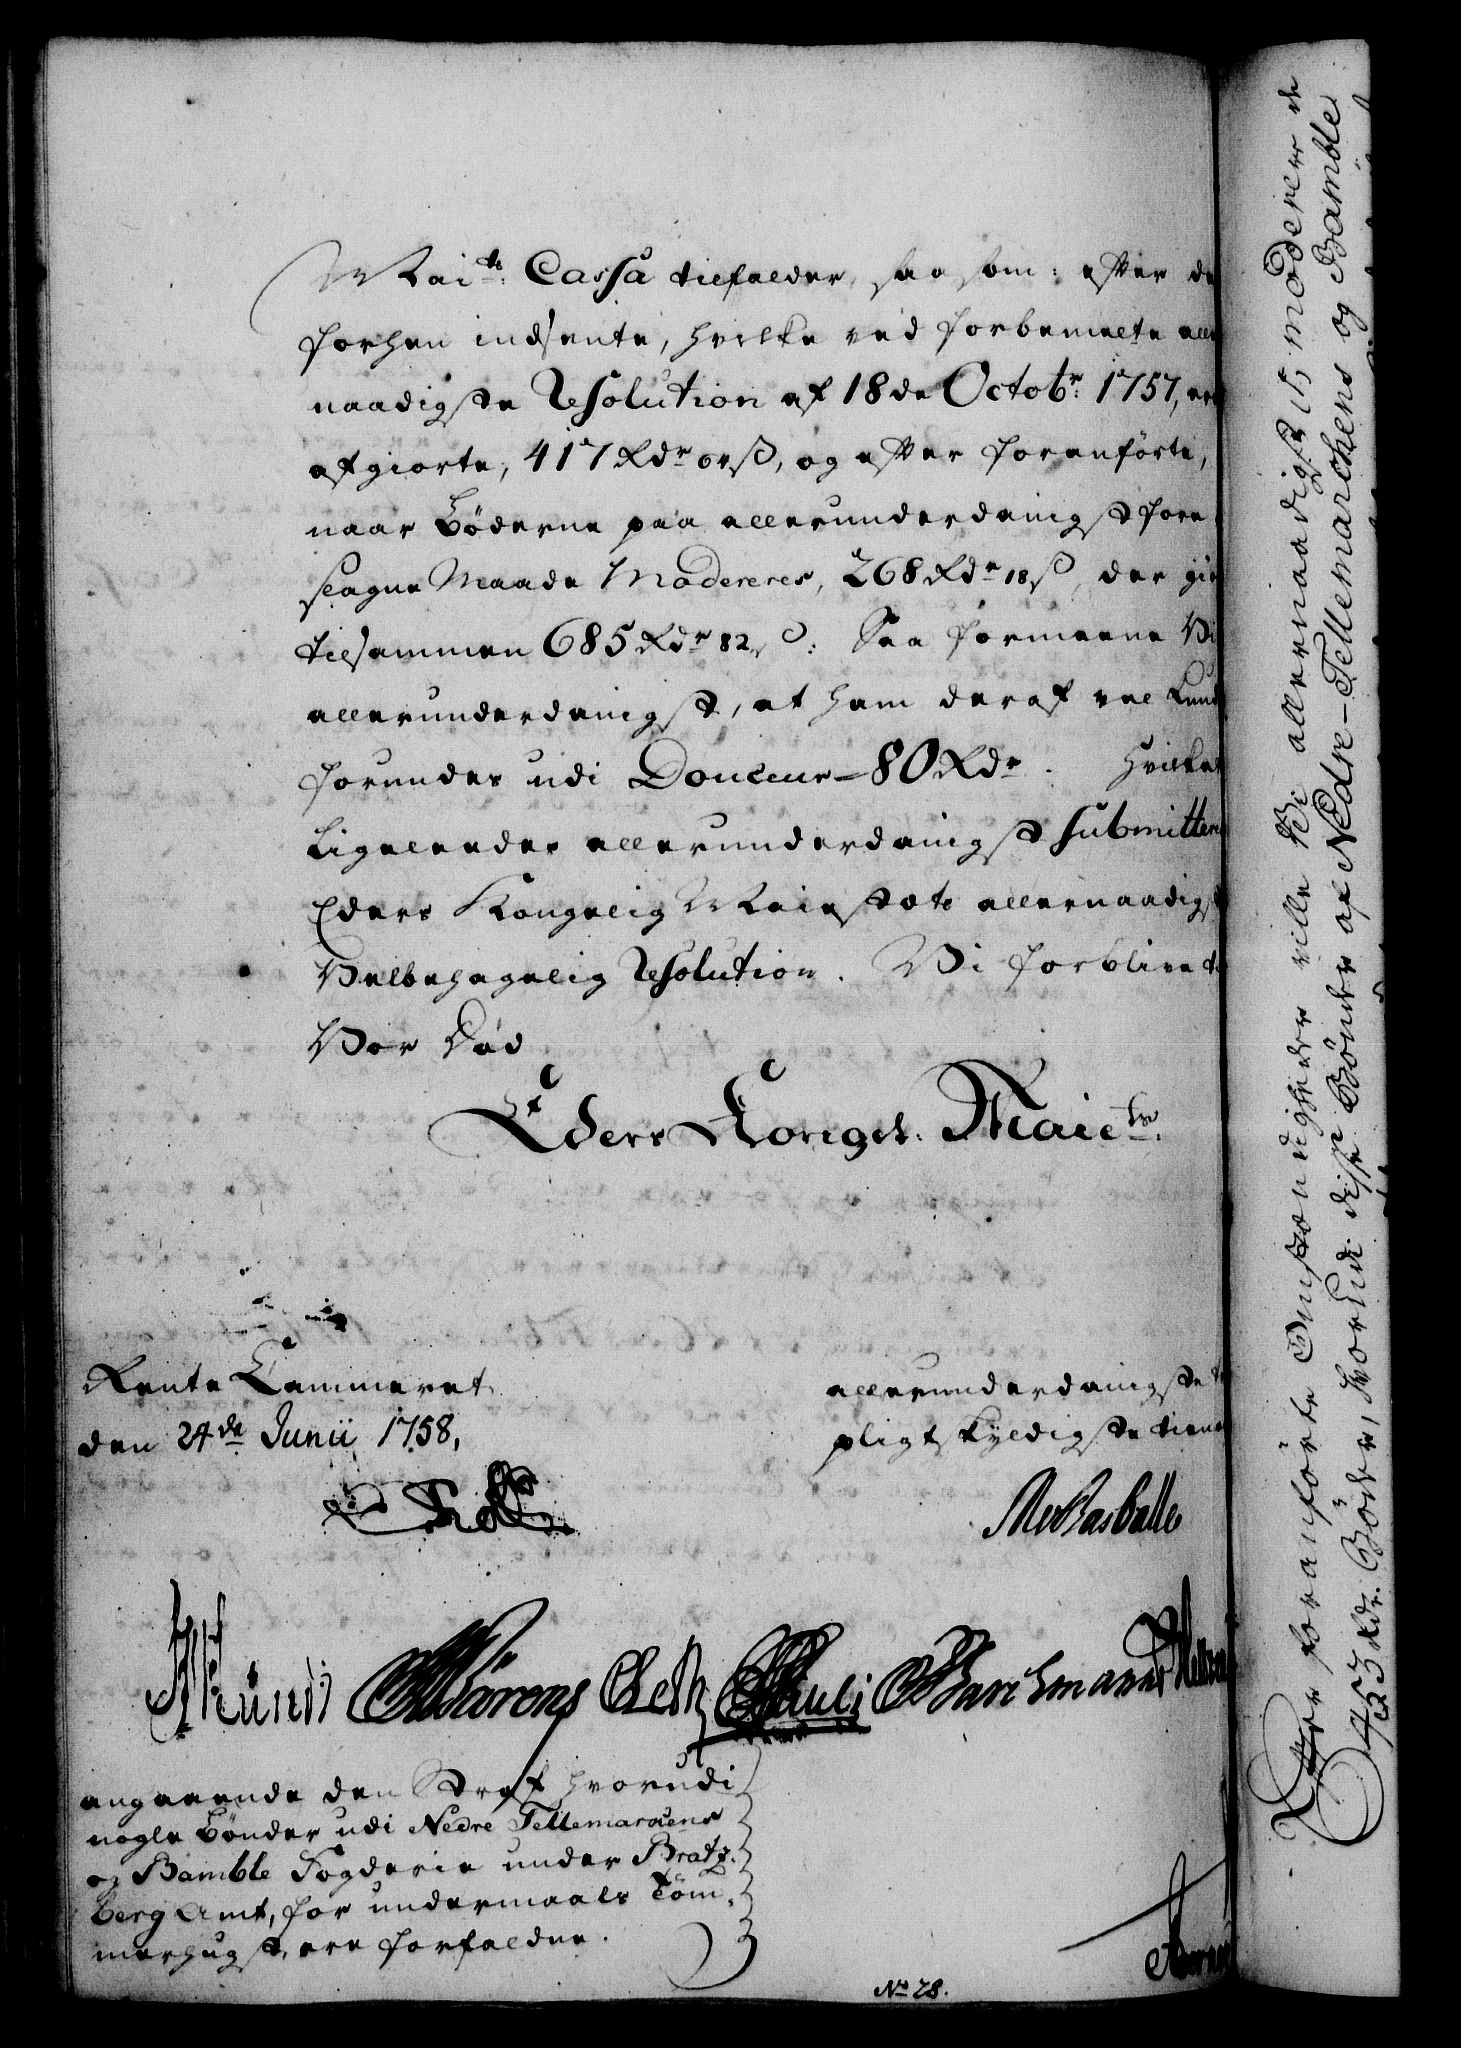 Mai:ts Cassa tilfalder, saasom: efter de
forhen indsente, hvilke ved forbemelte aller
naadigste Resolution af 18de Octobr: 1757, ere
afgiorte, 417 Rdr 64 ß, og efter foranförte,
naar Böderne paa allerunderdanigst fore
slagne Maade Modereres, 268 Rdr 18 ß, der giör
tilsammen 685 Rdr 82 ß: Saa formeene Vi
allerunderdanigst, at ham deraf vel kunde
forundes udi Douceur 80 Rdr. Hvilket
ligeledes allerunderdanigst submitteres
Eders Kongelig Maiestæts allernaadigst
Velbehagelig Resolution. Vi forblive til
Vor Död
Eders Kongel: Maies:ts
Rente Cammeret
den 24de Junii 1758,
allerunderdanigste
pligtskyldigste tiene
angaaende den Straf, hvorudi
nogle Bönder udi Nedre Tellemarkens
og Bamble Fogderie under Bratz-
berg Amt, for undermaals Töm-
merhugst, ere forfaldne.
No 28.
Efter foranförte Omstændigheder ville Vi allernaadigst moderere de
453 Rdr. Böder, hvorudi disse Bönder af Nedre-Tellemarchens og Bamble